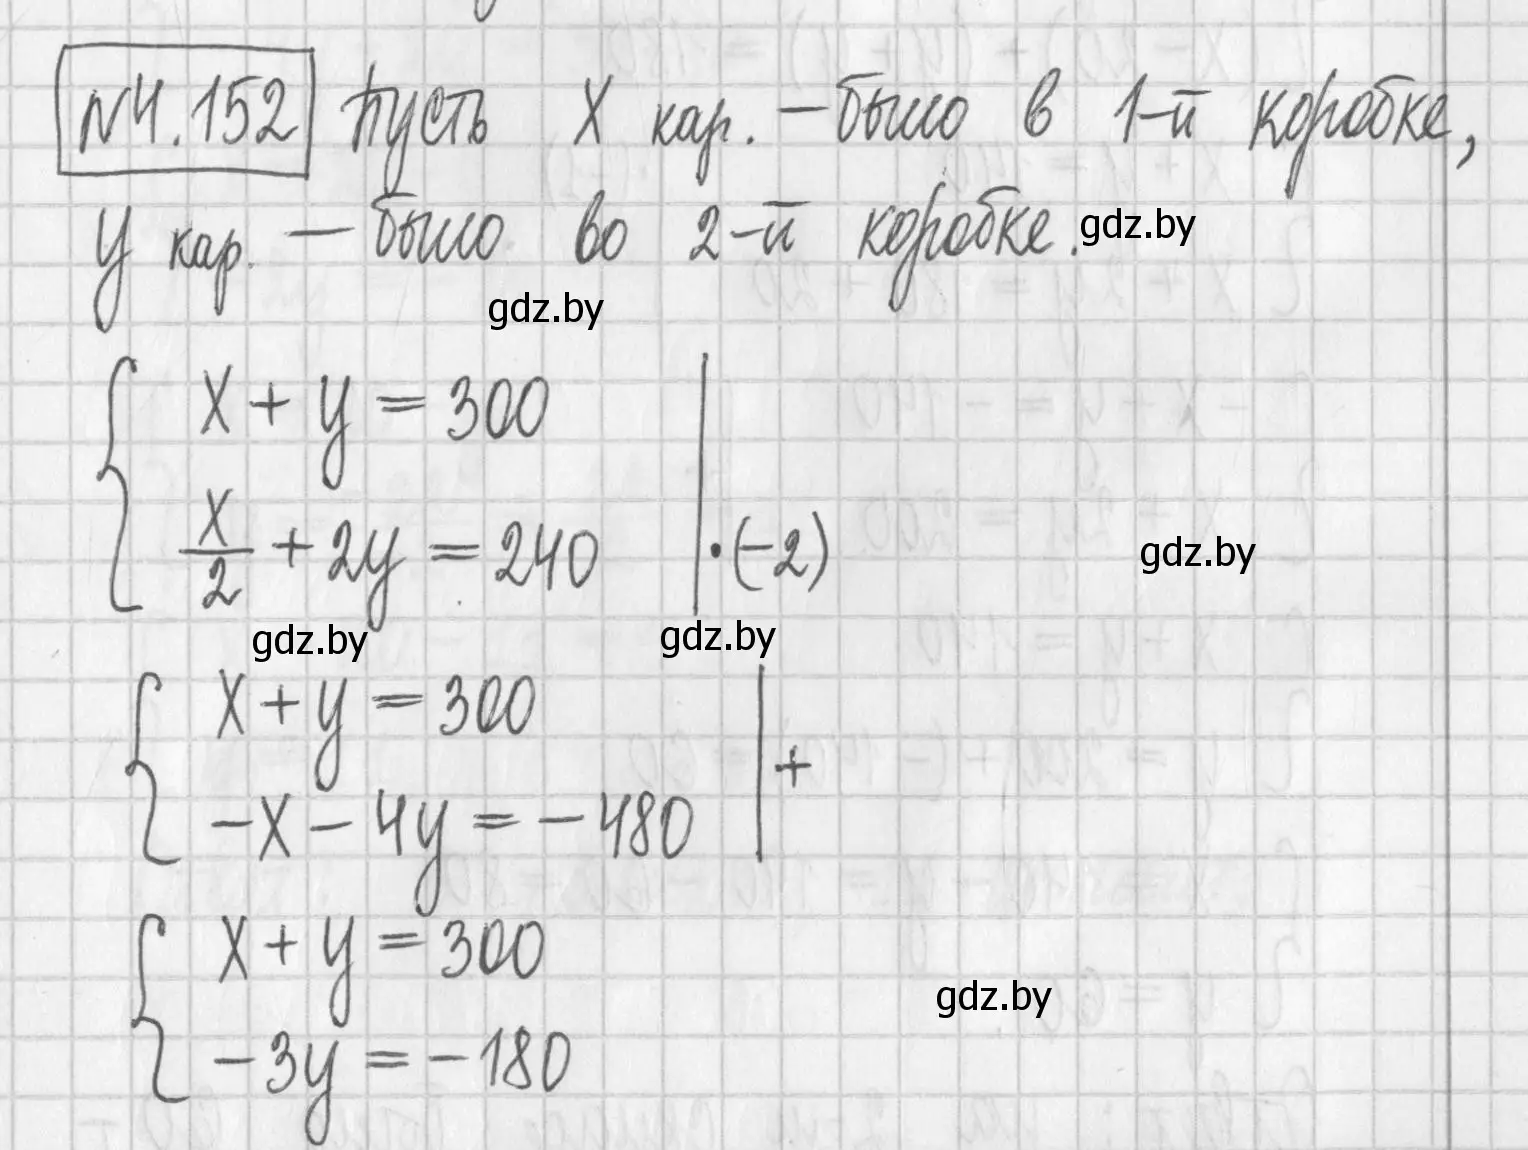 №4.152 Пусть X кар. – было в 1-й коробке,
y кар. – было во 2-й коробке. gdz.by
gdz.by
{ X + y = 300
X/2 + 2y = 240 | · (-2) gdz.by
gdz.by gdz.by
{ X + y = 300
-X - 4y = -480 | +
{ X + y = 300
gdz.by
-3y = -180